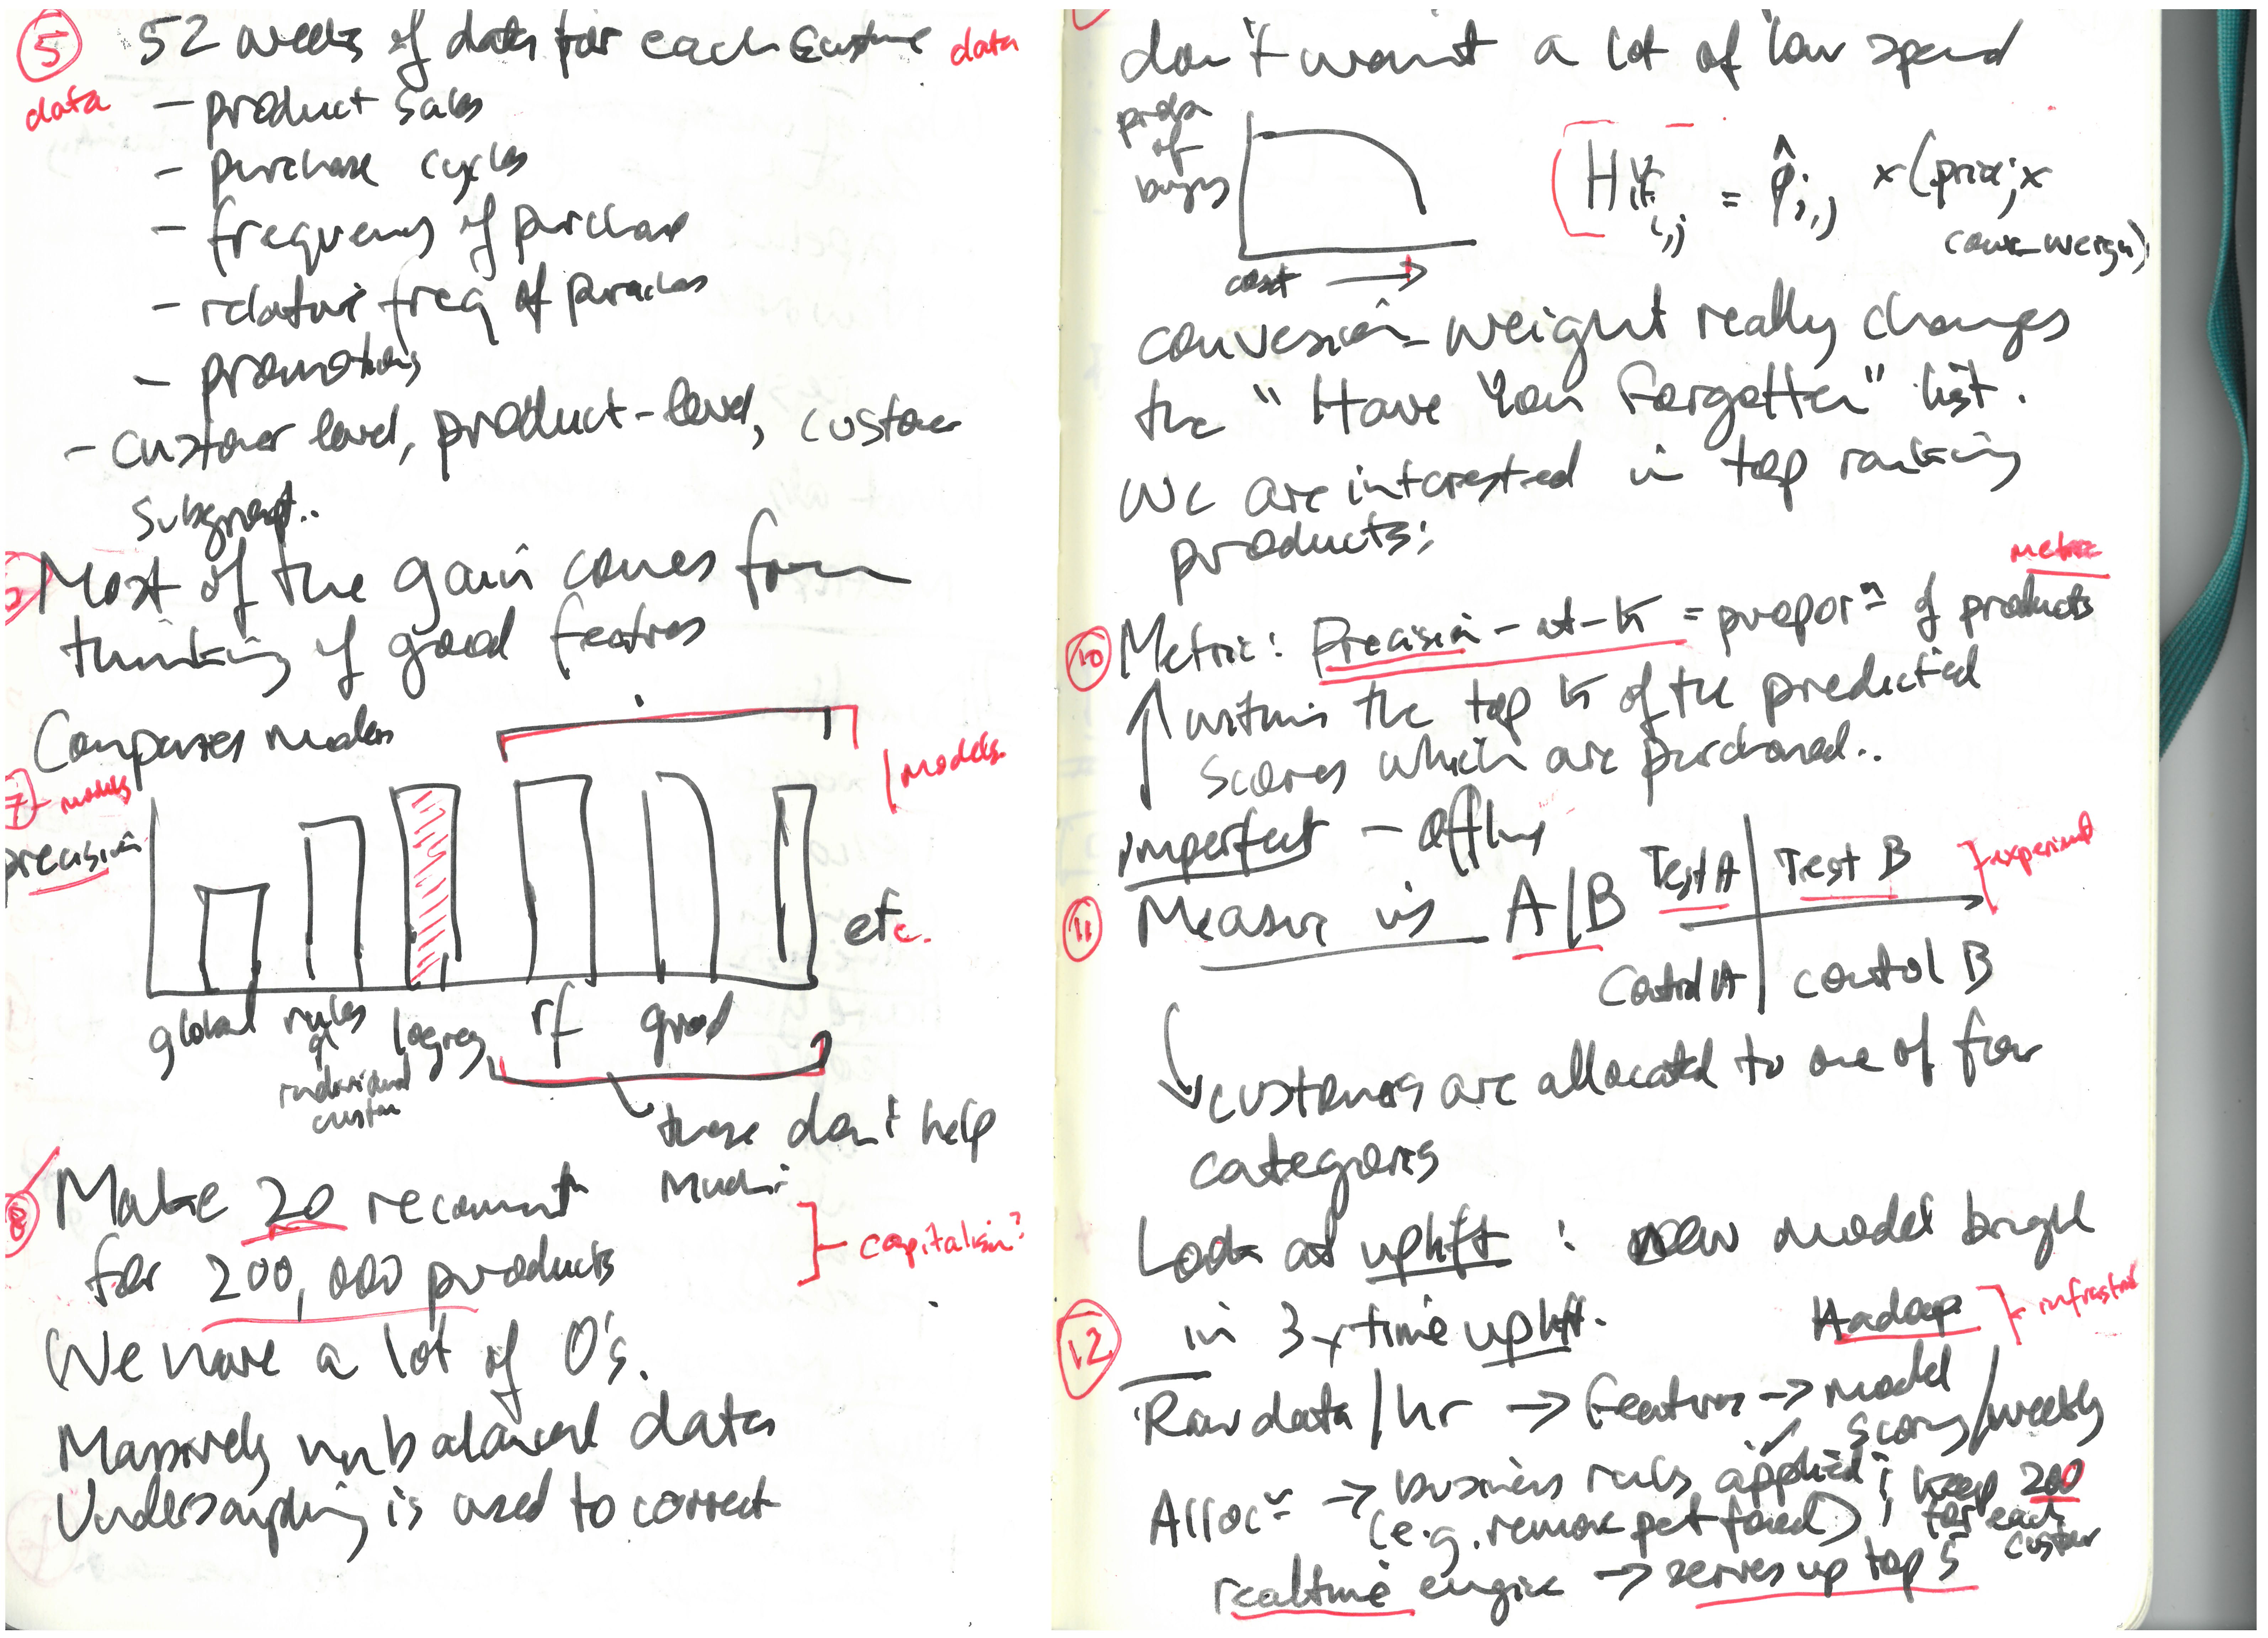 5 52 weeks of data for each custome data
data
- product sales
- purchase cycles
- frequency of purchase
- relative freq of purchases
- promotions
- customer level, product-level, customer
subgroup..
Most of the gain comes from
thinking of good features
Compares models
models
7 - models
precision
etc.
global rules logreg rf
individual
custom
these don't help
much.
8 Make 20 recomm
for 200,000 products
capitalism?
We have a lot of 0's.
Massively unbalanced data
Undersampling is used to correct
don't want a lot of low spend
of
buying
cost
HYF i,j = p̂ i,j x (price j x
conv_weight)
conversion_weight really changes
the "Have You Forgotten" list.
We are interested in top ranking
products:
metric
10 Metric: Precision-at-K = propor^n of products
within the top K of the predicted
scores which are purchased..
imperfect - offline
11 Measure is A|B Test A Test B
experiment
Control A control B
customers are allocated to one of four
categories
Look at uplift : new model
in 3x time uplift.
12 Hadoop
Raw data / hr -> features -> model
scoring / weekly
Alloc^n -> business rules applied ; keep 200
(e.g. remove pet food) ; for each
custom
realtime engine -> serves up top 5